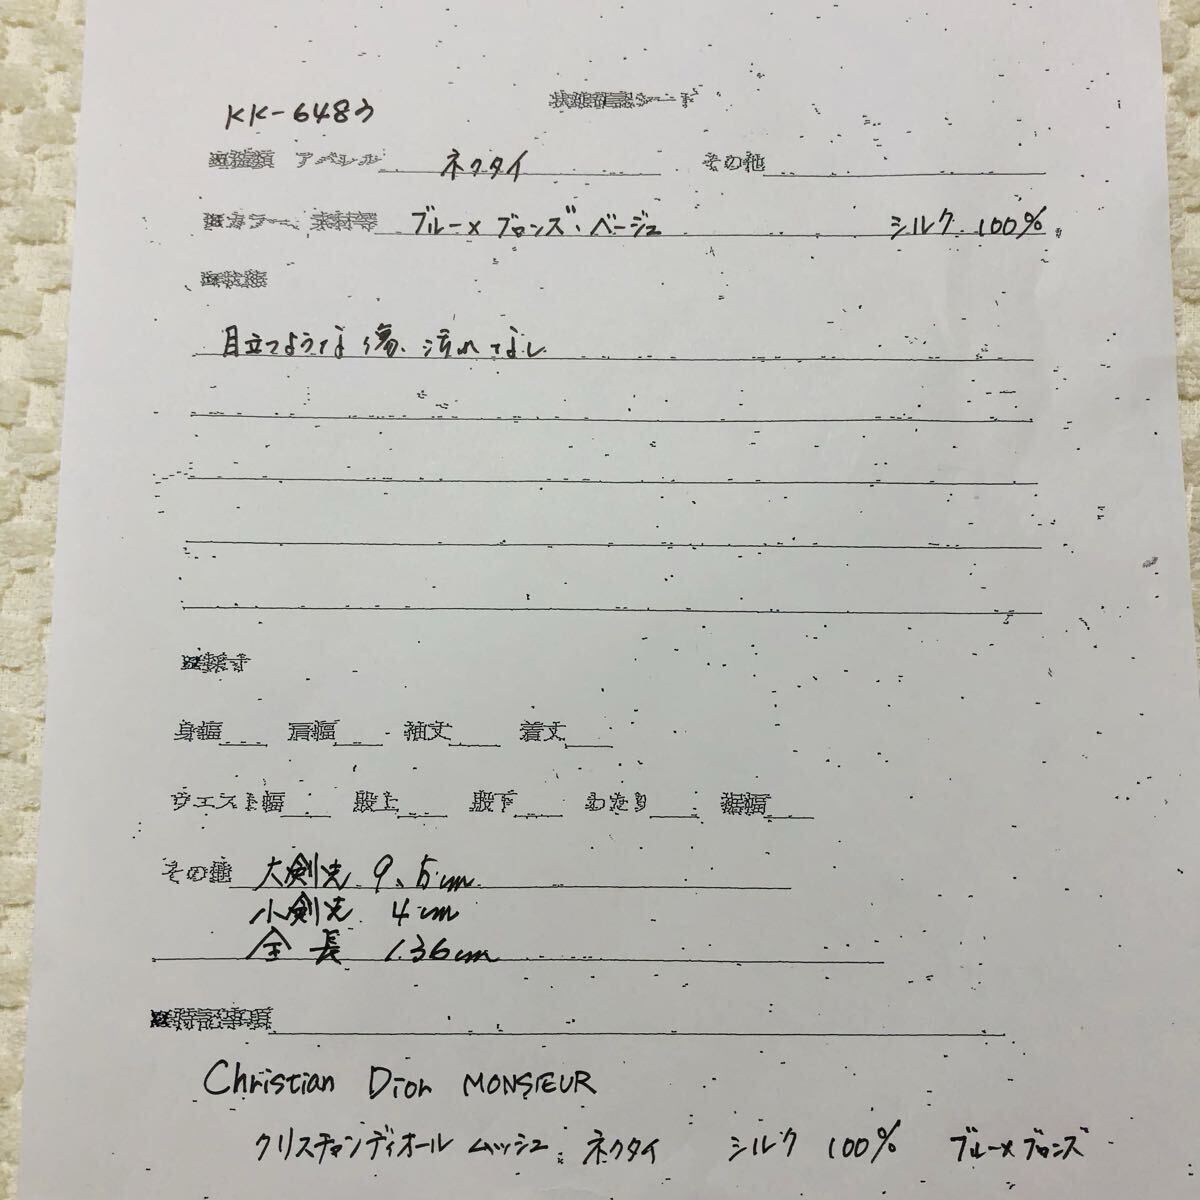 KK-6483
状態確認シート
アパレル ネクタイ その他
カラー、素材等 ブルー×ブロンズ・ベージュ シルク 100%
状態
目立つような傷、汚れなし
採寸
身幅 肩幅 袖丈 着丈
ウエスト幅 股上 股下 わたり 裾幅
その他 大剣先 9.5cm
小剣先 4cm
全長 136cm
特記事項
Christian Dior MONSIEUR
クリスチャンディオール ムッシュ ネクタイ シルク 100% ブルー×ブロンズ